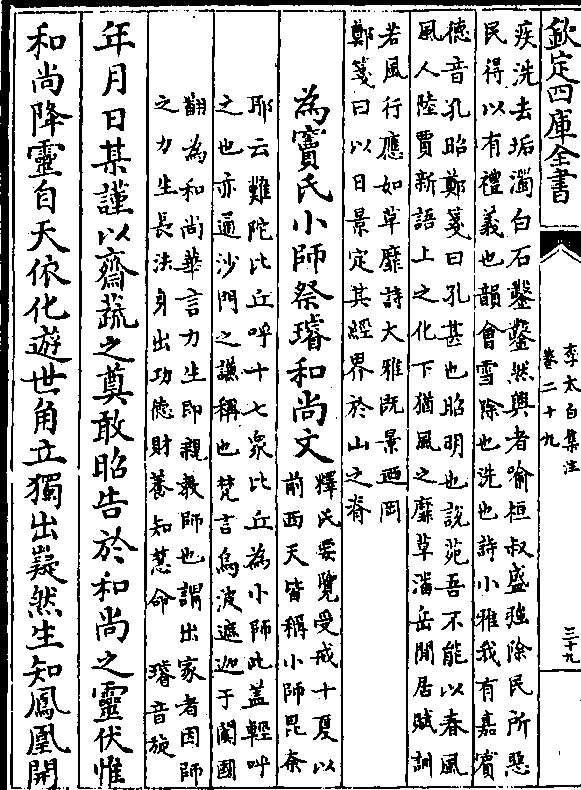 欽定四庫全書
李太白集注
卷二十九
三十九
疾洗去垢濁白石鑿鑿然興者喻桓叔盛強除民所惡
民得以有禮義也韻會雪除也洗也詩小雅我有嘉賓
德音孔昭鄭箋曰孔甚也昭明也說苑吾不能以春風
風人陸賈新語上之化下猶風之靡草潘岳閒居賦訓
若風行應如草靡詩大雅既景迺岡
鄭箋曰以日景定其經界於山之脊
為竇氏小師祭璿和尚文
釋氏要覽受戒十夏以
前西天皆稱小師毘奈
耶云難陀比丘呼十七衆比丘為小師此盖輕呼
之也亦通沙門之謙稱也梵言烏波遮迦于闐國
翻為和尚華言力生即親教師也謂出家者因師
之力生長法身出功徳財養知慧命 璿音旋
年月日某謹以齋蔬之奠敢昭告於和尚之靈伏惟
和尚降靈自天依化遊世角立獨出嶷然生知鳳凰開